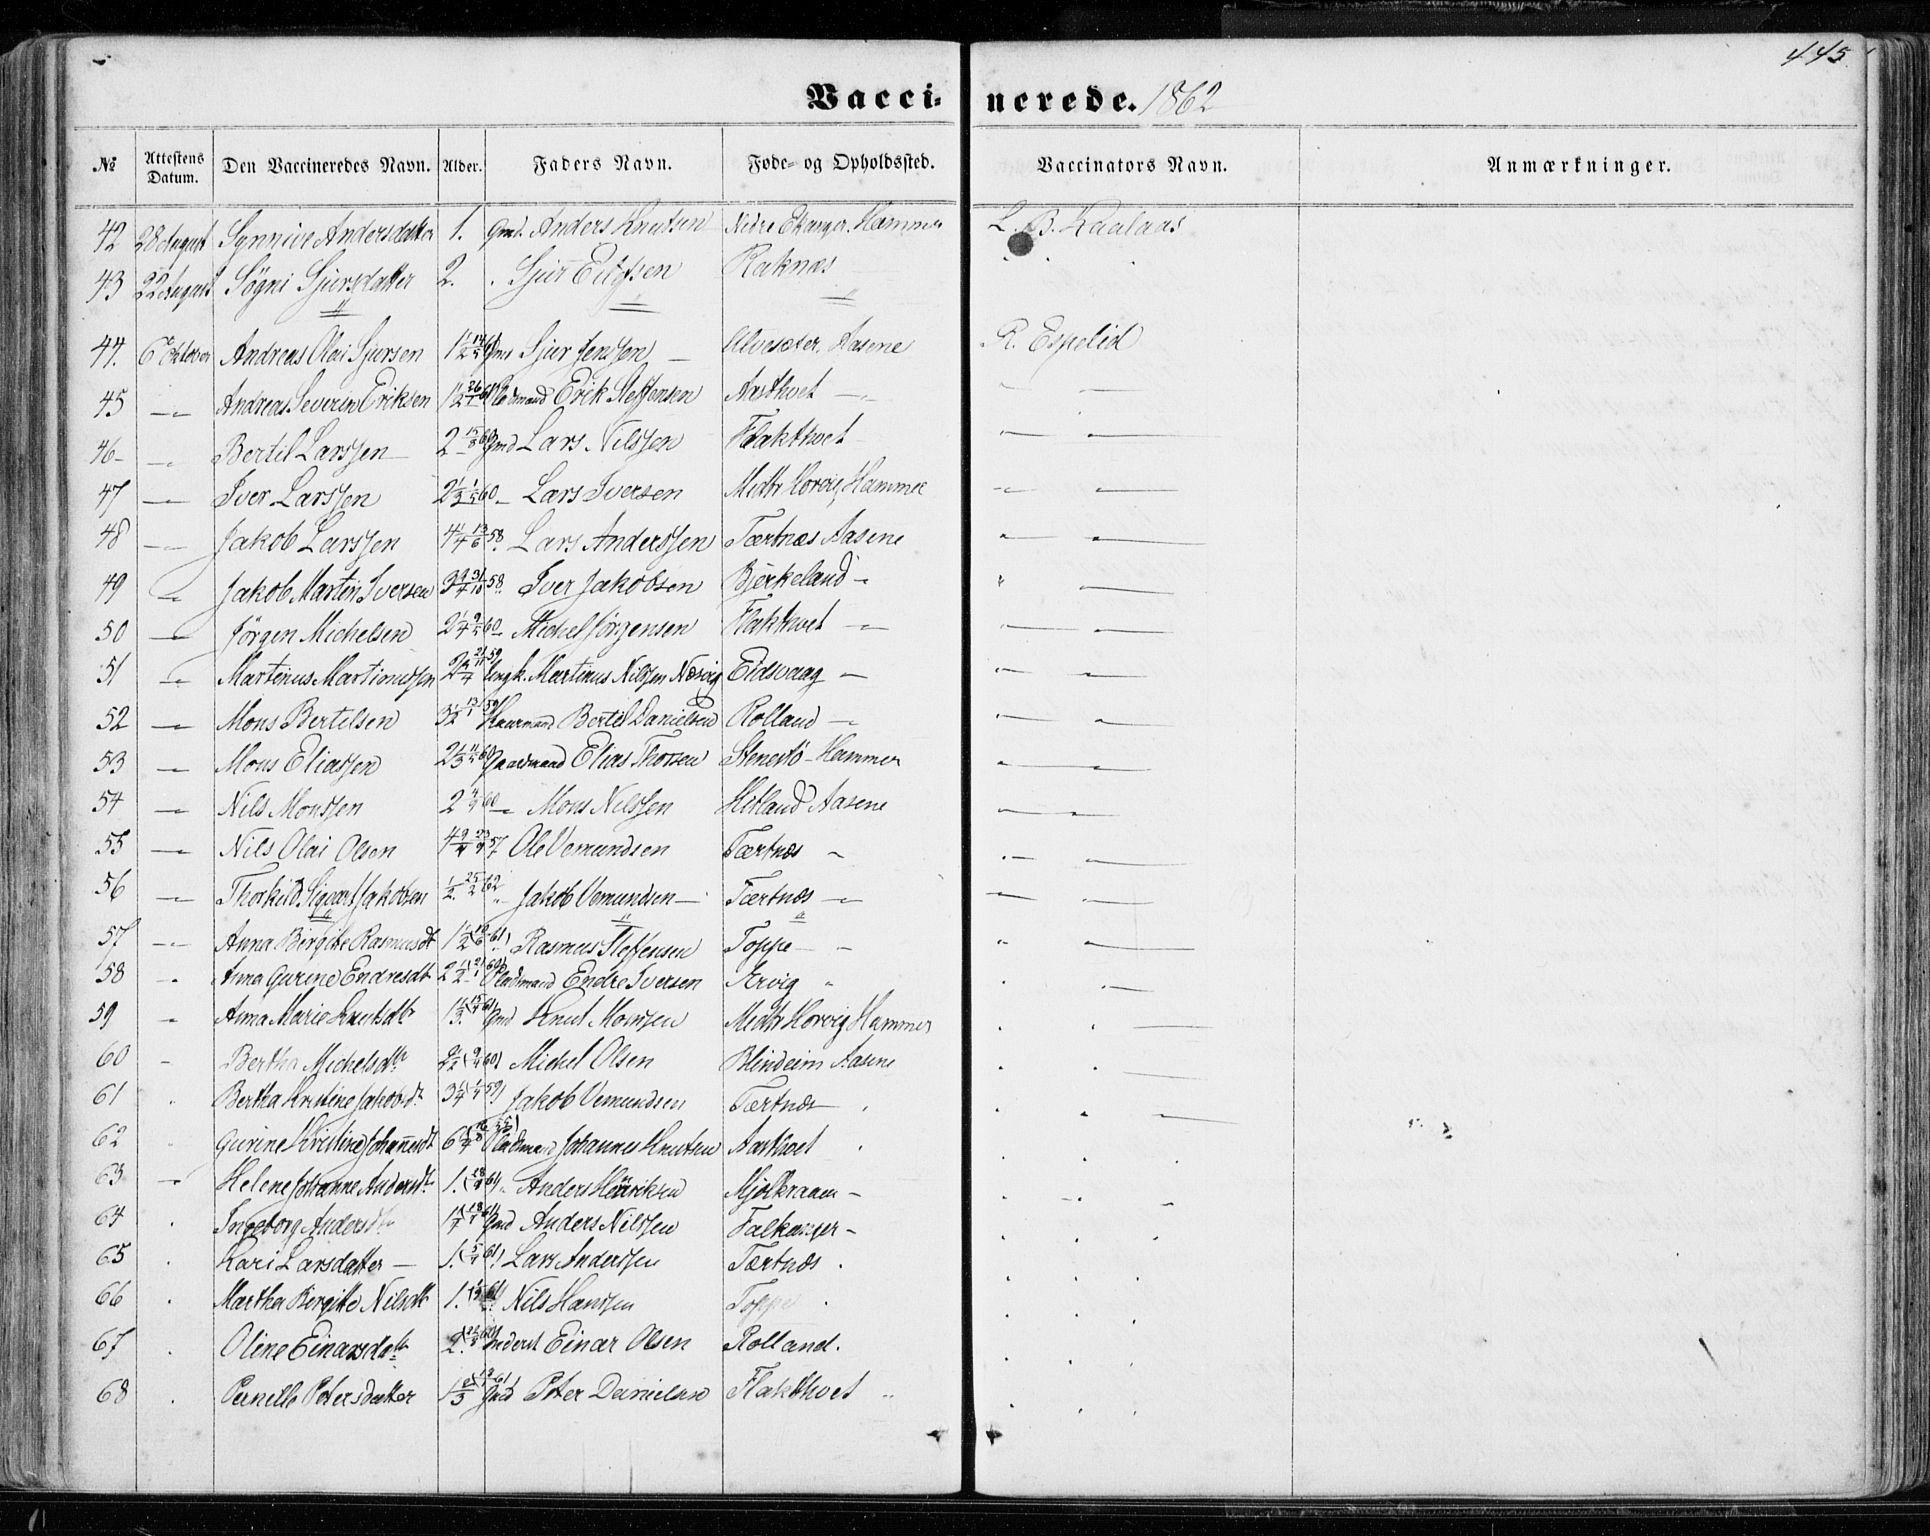 445
Vaccinerede. 1862
№ Attestens Datum. Den Vaccineredes Navn. Alder. Faders Navn. Føde- og Opholdssted. Vaccinators Navn. Anmærkninger.
42 28 August Synnive Andersdatter 1. Gmd. Anders Knutsen Nedre Ekanger, Hammer L. B. Kaalaas
43 22 August Sögni Sjursdatter 2. Sjur Ellefsen Raknæs
44. 6 Oktober Andreas Olai Sjursen 1 1/2 Gmd Sjur Jenssen — Alvesæter, Aasene R. Espelid
45 —"— Andreas Severin Eriksen 1 1/2 Pladsmand Erik Steffensen Aasthvet —"—
46 — —"— Bertil Larssen 2 15/8 60 Gmd Lars Nilssen Flakthvet
47 —"— Iver Larssen 2 1/3 1/5 60 — Lars Iversen Midtr Horvig, Hammer
48 —"— Jakob Larssen 4 1/4 13/6 58 " Lars Anderssen Tærtnæs Aasene
49 —"— Jakob Martin Iversen 3 3/4 31/10 58 " Iver Jakobsen Bjerkeland —"
50 —"— Jörgen Michelsen 2 1/4 9/5 60 — Michel Jörgensen Flakthvet —"—
51 —"— Martinus Martinussen 2 3/4 21/11 59 Ungk. Martinus Nilsen Næsvig Eidsvaag —
52 —"— Mons Bertelsen 3 1/2 13/1 59 Huusmand Bertel Danielsen Rolland —"—
53 —"— Mons Eliassen 2 1/3 Gaardmand Elias Thorsen Stenestø — Hammer
54 —"— Nils Monssen 2 60 —"— Mons Nilssen Hetland Aasene
55 —"— Nils Olai Olsen 4 3/4 57 Ole Vemundsen Tærtnæs "
56 —"— Thorkild Sigvart Jakobsen 1/2 25/2 62 " Jakob Vemundsen — Tærtnæs —"—
57 —"— Anna Birgitte Rasmusdt 1 1/2 61) Rasmus Steffensen Toppe — "
58 —" Anna Gurine Endresdt 2 1/2 60) Pladsmand Endre Iversen Ervig "
59 " Anna Marie Knutsdtr 1 1/3 Gmd Knut Monssen Midtr Horvig Hammer
60 " Bertha Michelsdtr 2 1/2 60) Michel Olsen Blindeim Aasene
61 " Bertha Kristine Jakobsdt 3 1/4 59) Jakob Vemundsen Tærtnæs "
62 " Gurine Kristine Johannesdt 6 Pladsmand Johannes Knutsen Aasthvet "
63 —" Helene Johanne Andersdt 1. 61) " Anders Henriksen Mjølkraaen —
64 " Ingeborg Andersdtr 1 Gmd Anders Nilssen Falkanger —
65 " Kari Larsdatter — 1. (5/9 61) Lars Anderssen Tærtnæs "
66 " Martha Birgitte Nilsdtr 1. Nils Hanssen Toppe "
67 " Oline Einarsdatter 2. Inderst Einar Olsen Rolland.
68 " Pernille Petersdatter 1 1/3 Gmd Peter Danielsen Flakthvet "